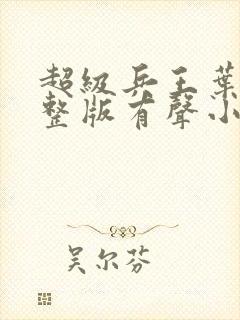 超級兵王葉
整版有聲小
吴尔芬